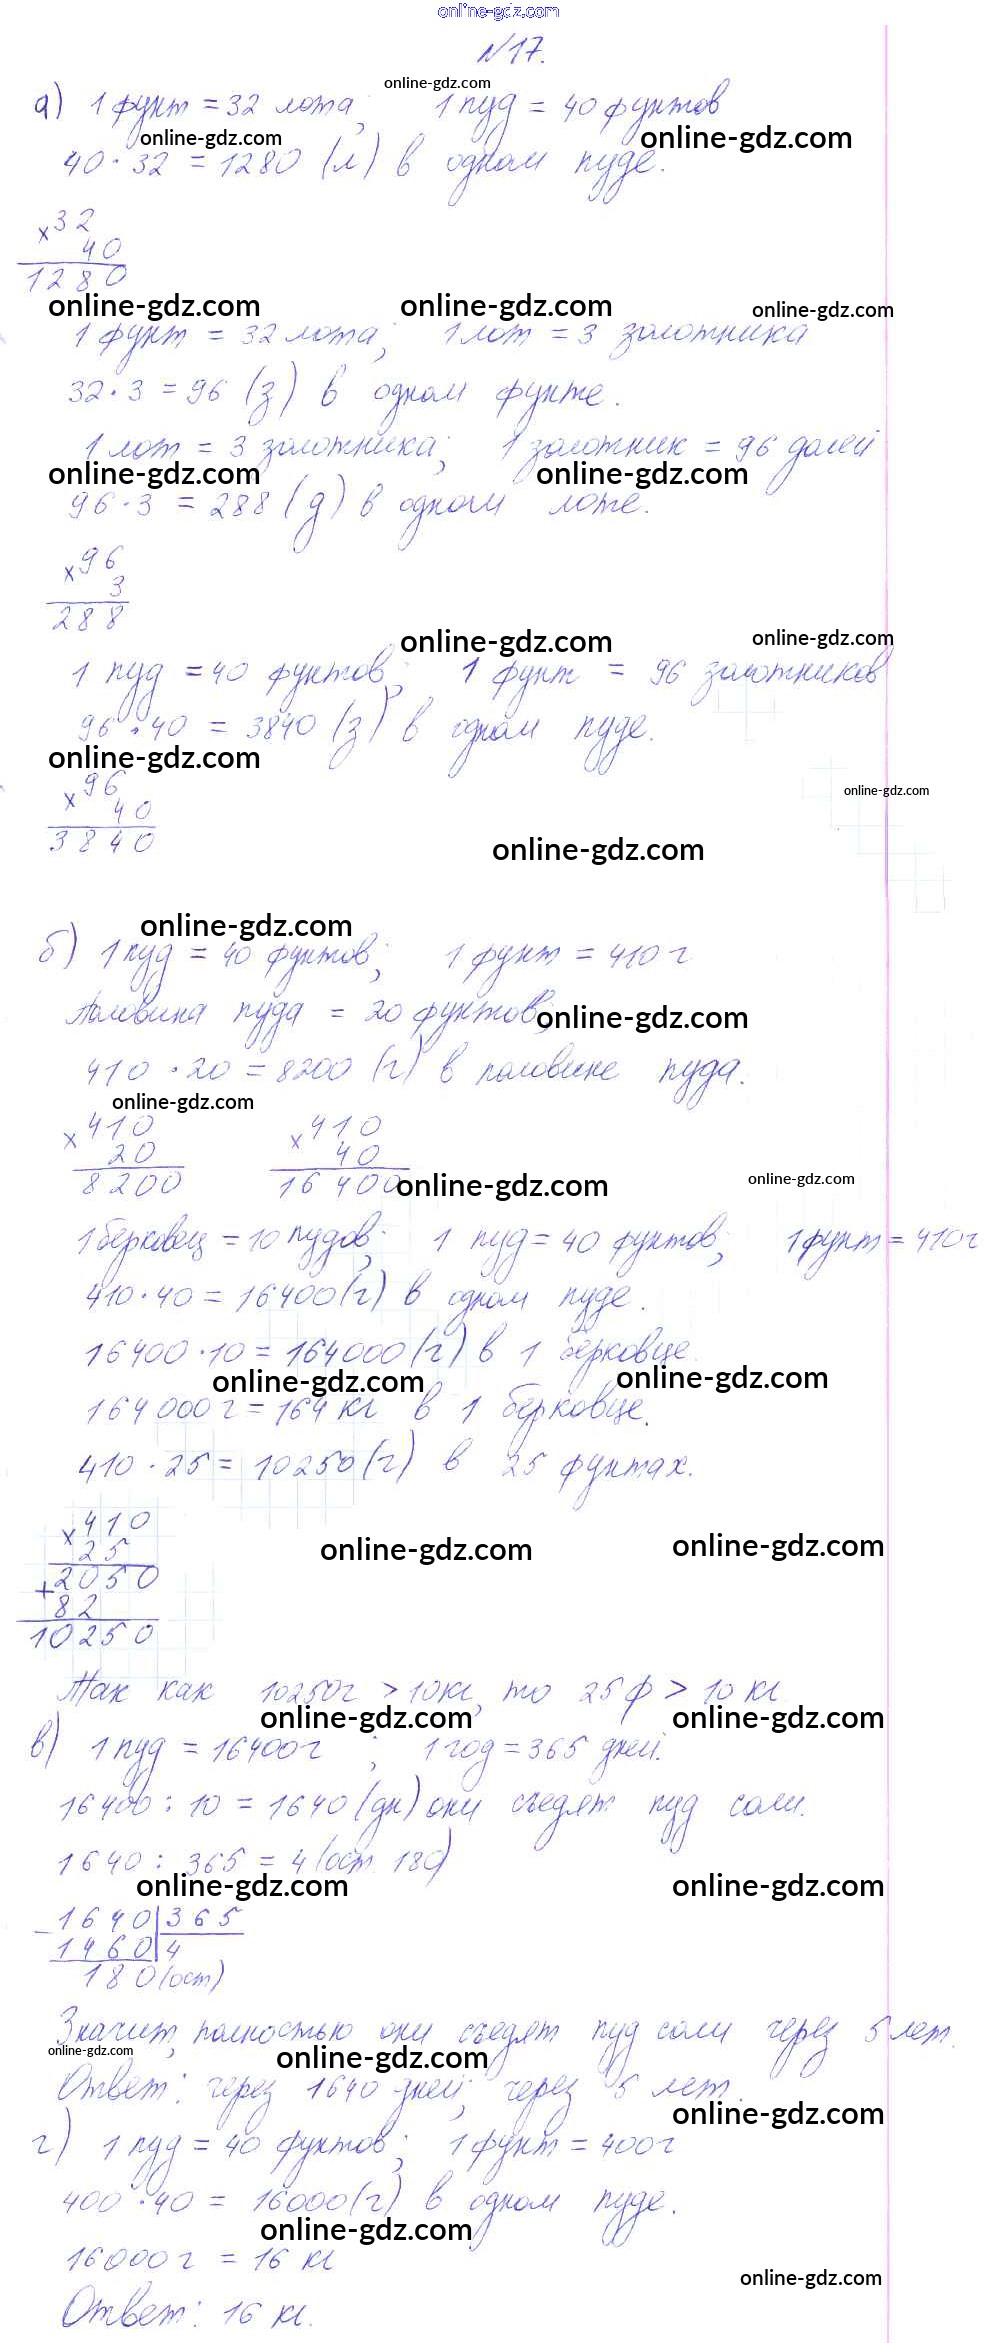 online-gdz.com
№17.
online-gdz.com
а) 1 фунт = 32 лота; 1 пуд = 40 фунтов
online-gdz.com online-gdz.com
40 · 32 = 1280 (л) в одном пуде.
×32
40
1280
online-gdz.com online-gdz.com online-gdz.com
1 фунт = 32 лота; 1 лот = 3 золотника
32 · 3 = 96 (з) в одном фунте.
1 лот = 3 золотника; 1 золотник = 96 долей
online-gdz.com online-gdz.com
96 · 3 = 288 (д) в одном лоте.
×96
3
288
online-gdz.com online-gdz.com
1 пуд = 40 фунтов; 1 фунт = 96 золотников
96 · 40 = 3840 (з) в одном пуде.
online-gdz.com
×96
40
3840
online-gdz.com
online-gdz.com
online-gdz.com
б) 1 пуд = 40 фунтов; 1 фунт = 410 г
Половина пуда = 20 фунтов;
online-gdz.com
410 · 20 = 8200 (г) в половине пуда.
online-gdz.com
×410 ×410
20 40
8200 16400
online-gdz.com online-gdz.com
1 берковец = 10 пудов; 1 пуд = 40 фунтов; 1 фунт = 410 г
410 · 40 = 16400 (г) в одном пуде.
16400 · 10 = 164000 (г) в 1 берковце.
online-gdz.com online-gdz.com
164000 г = 164 кг в 1 берковце.
410 · 25 = 10250 (г) в 25 фунтах.
×410
25
+2050
82
10250
online-gdz.com online-gdz.com
Так как 10250 г > 10 кг, то 25 ф > 10 кг
online-gdz.com online-gdz.com
в) 1 пуд = 16400 г ; 1 год = 365 дней.
16400 : 10 = 1640 (дн) они съедят пуд соли.
1640 : 365 = 4 (ост. 180)
online-gdz.com online-gdz.com
-1640|365
1460|4
180 (ост)
Значит, полностью они съедят пуд соли через 5 лет.
online-gdz.com online-gdz.com
Ответ: через 1640 дней; через 5 лет.
online-gdz.com
г) 1 пуд = 40 фунтов; 1 фунт = 400 г
400 · 40 = 16000 (г) в одном пуде.
online-gdz.com
16000 г = 16 кг
online-gdz.com
Ответ: 16 кг.